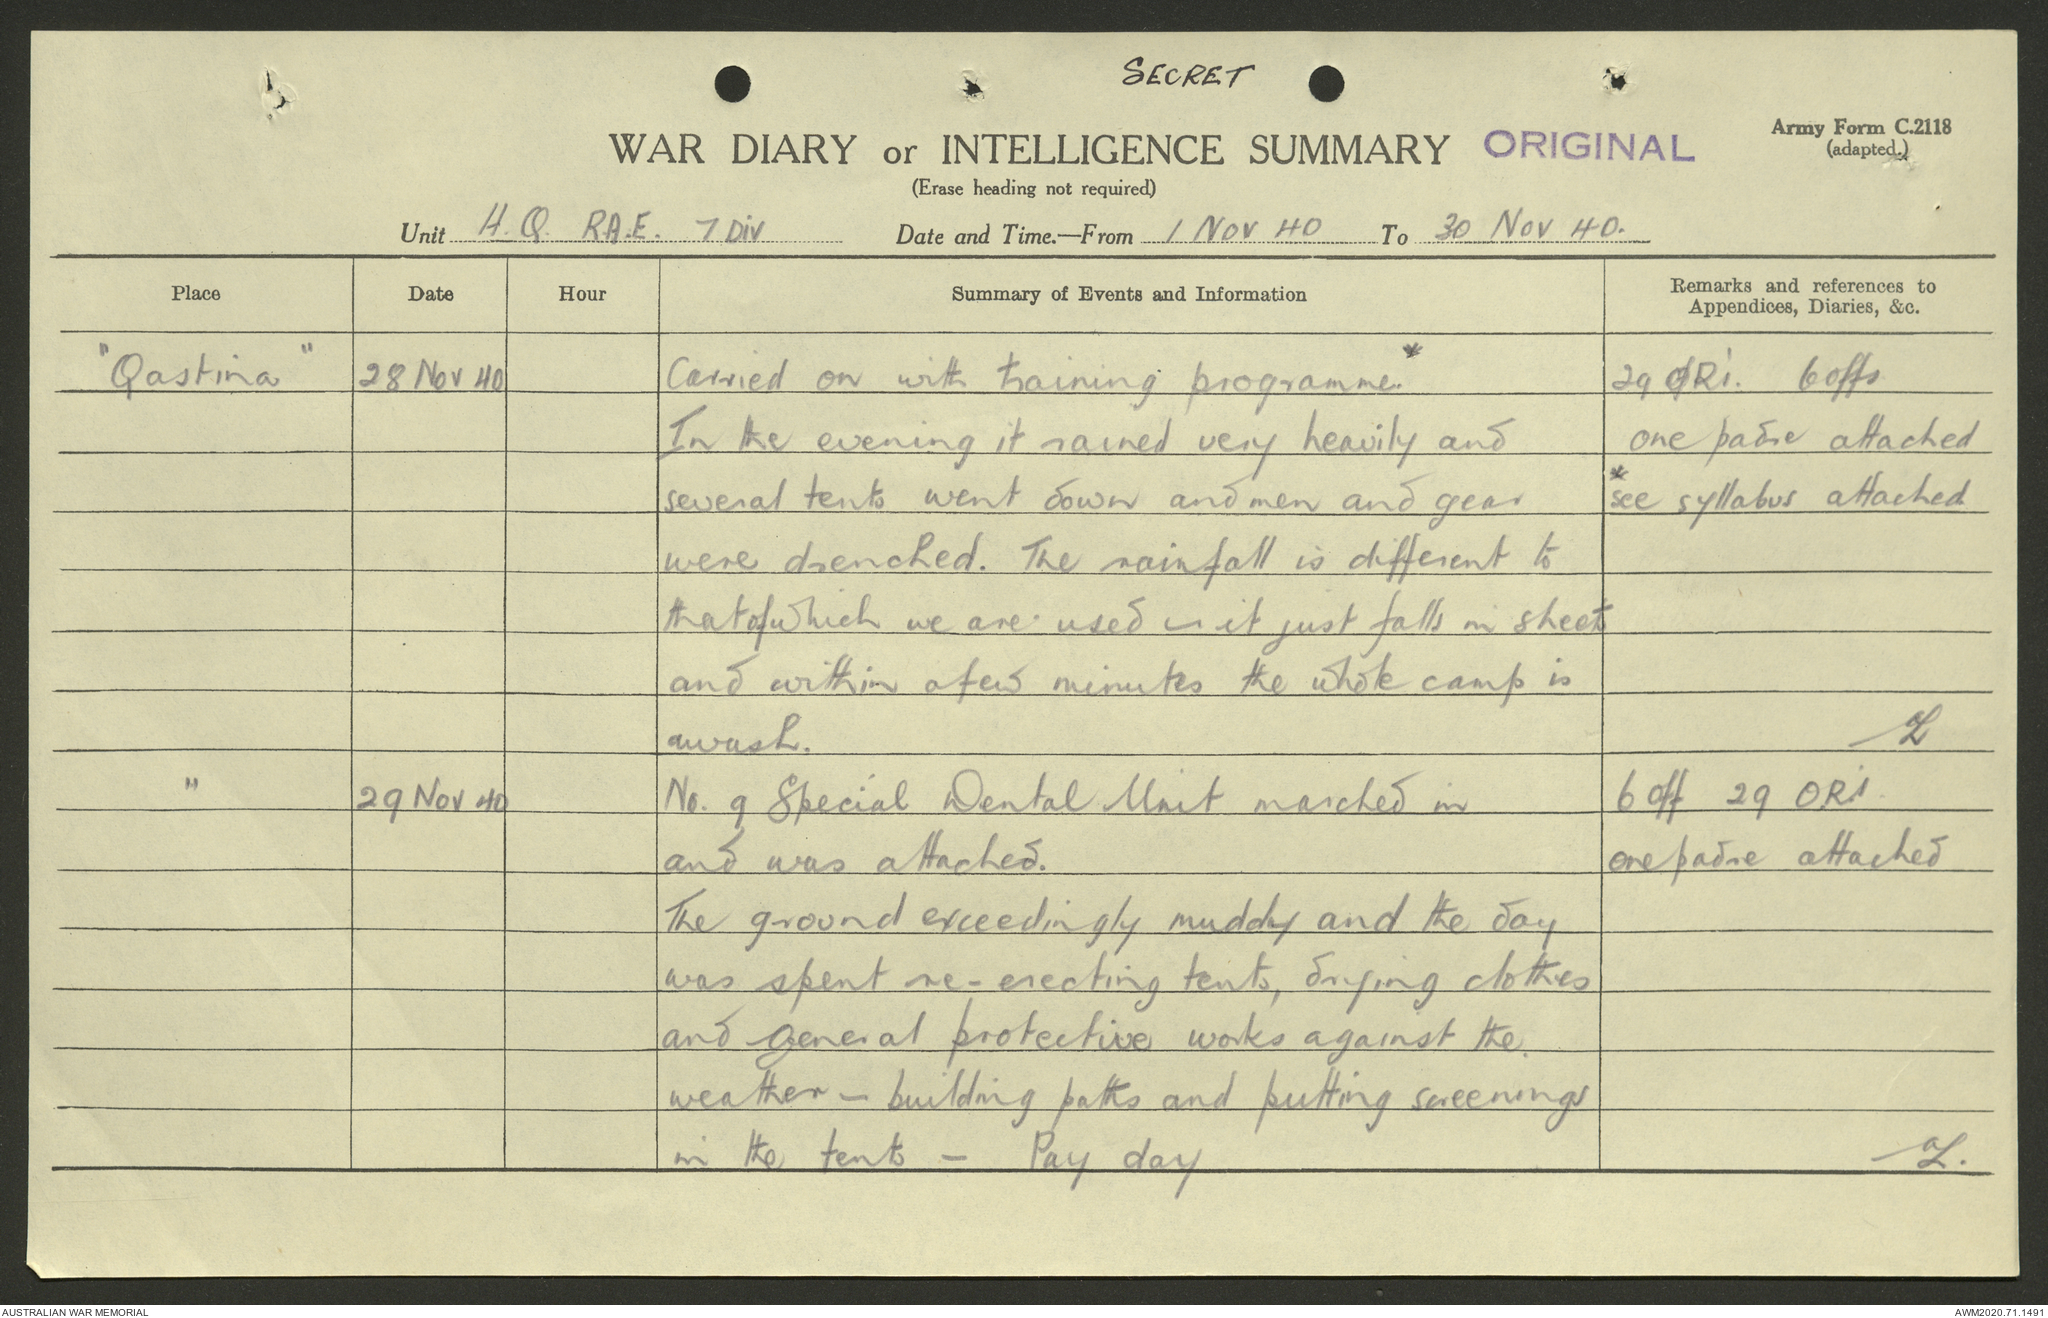 SECRET
WAR DIARY or INTELLIGENCE SUMMARY ORIGINAL
Army Form C.2118
(adapted.)
(Erase heading not required)
Unit H.Q. R.A.E. 7 Div Date and Time.—From 1 Nov 40 To 30 Nov 40.
Place Date Hour Summary of Events and Information Remarks and references to
Appendices, Diaries, &c.
"Qastina" 28 Nov 40 Carried on with training programme.* 29 ORs. 6 offs
In the evening it rained very heavily and one padre attached
several tents went down and men and gear *see syllabus attached
were drenched. The rainfall is different to
that of which we are used - it just falls in sheets
and within a few minutes the whole camp is
awash.
" 29 Nov 40 No. 9 Special Dental Unit marched in 6 off 29 ORs
and was attached. one padre attached
The ground exceedingly muddy and the day
was spent re-erecting tents, drying clothes
and general protective works against the
weather - building paths and putting screenings
in the tents - Pay day
AUSTRALIAN WAR MEMORIAL AWM2020.71.1491